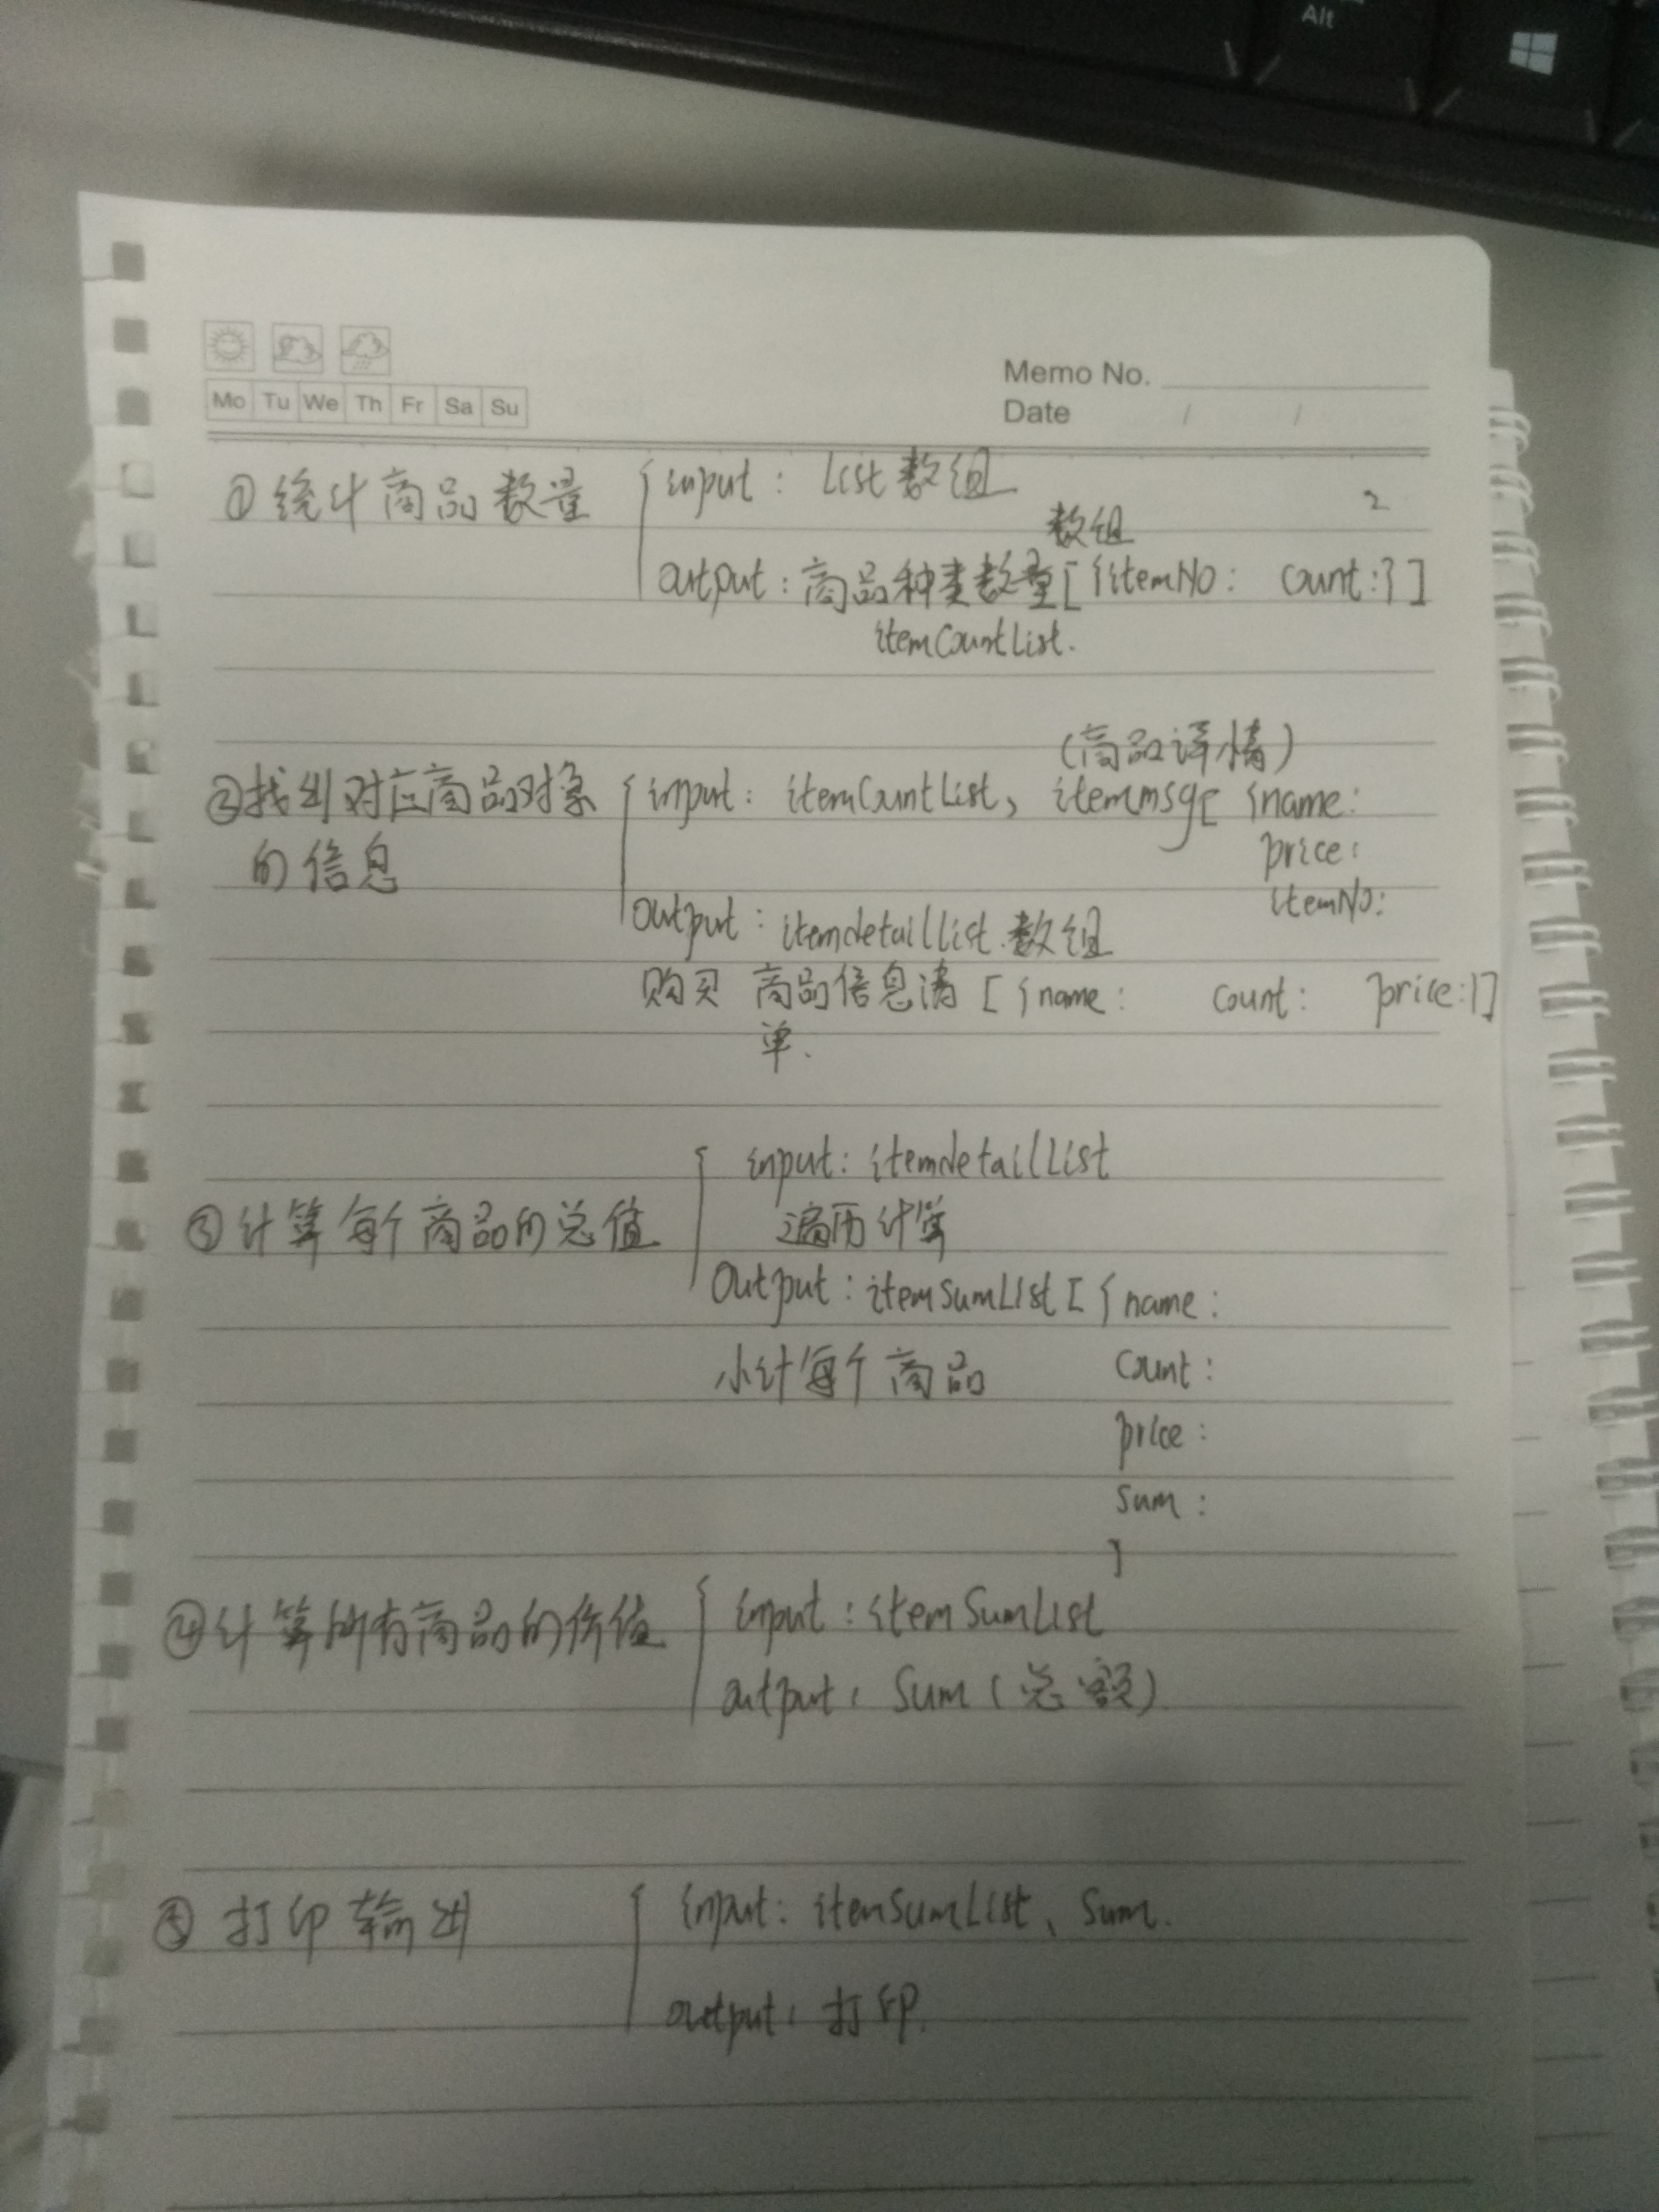 Alt
Mo Tu We Th Fr Sa Su
Memo No.
Date / /
①统计商品数量 { input: List数组
2
数组
output: 商品种类数量[{itemNO: count:}]
itemCountList.
(商品详情)
②找到对应商品对象 { input: itemCountList, itemmsg[ {name:
的信息
price:
itemNO:
output: itemdetaillist.数组
购买 商品信息清 [{name: count: price:}]
单.
input: itemdetailList
③计算每个商品的总值 { 遍历计算
Output: itemSumList[{name:
小计每个商品 count:
price:
sum:
]
④计算所有商品的价值 { input: itemSumList
output: Sum(总额)
⑤打印输出 { input: itemSumList、Sum.
output: 打印.